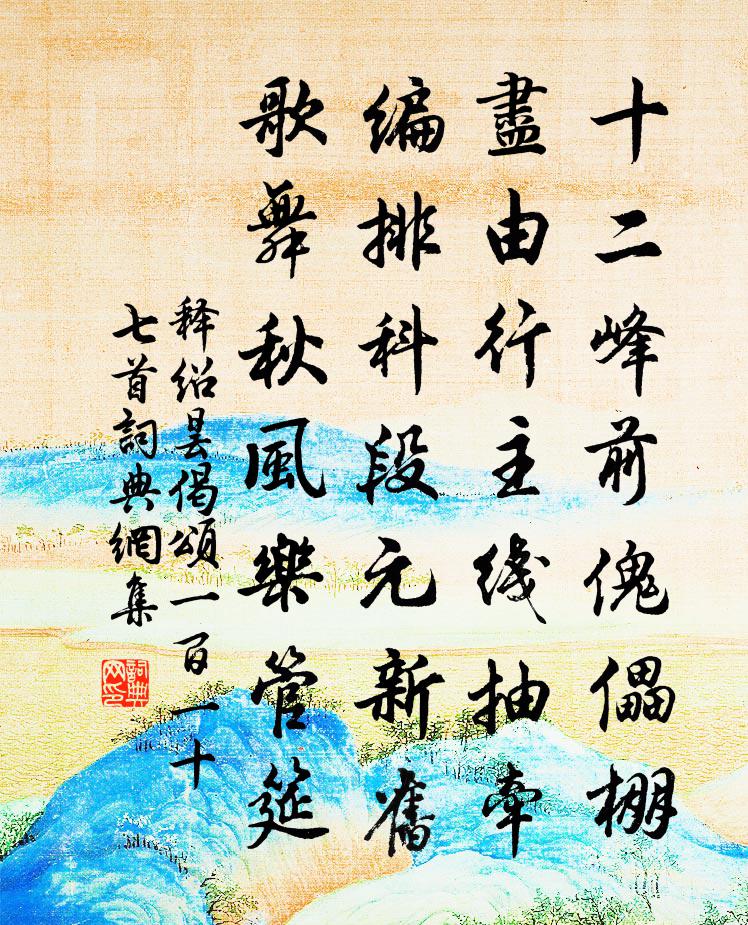 十二峰前傀儡棚
盡由行主线抽牵
編排科段元新舊
歌舞秋風樂管筵
释绍昙偈頌一百一十
七首詞典網集
詞典网印